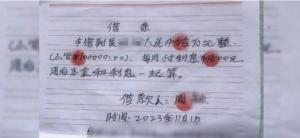 借条
今借到吴 人民币拾万元整
(小写¥100000.00)。每月付利息 1500元
周后本金和利息一起算。
借款人:周
时间:2023年11月1日